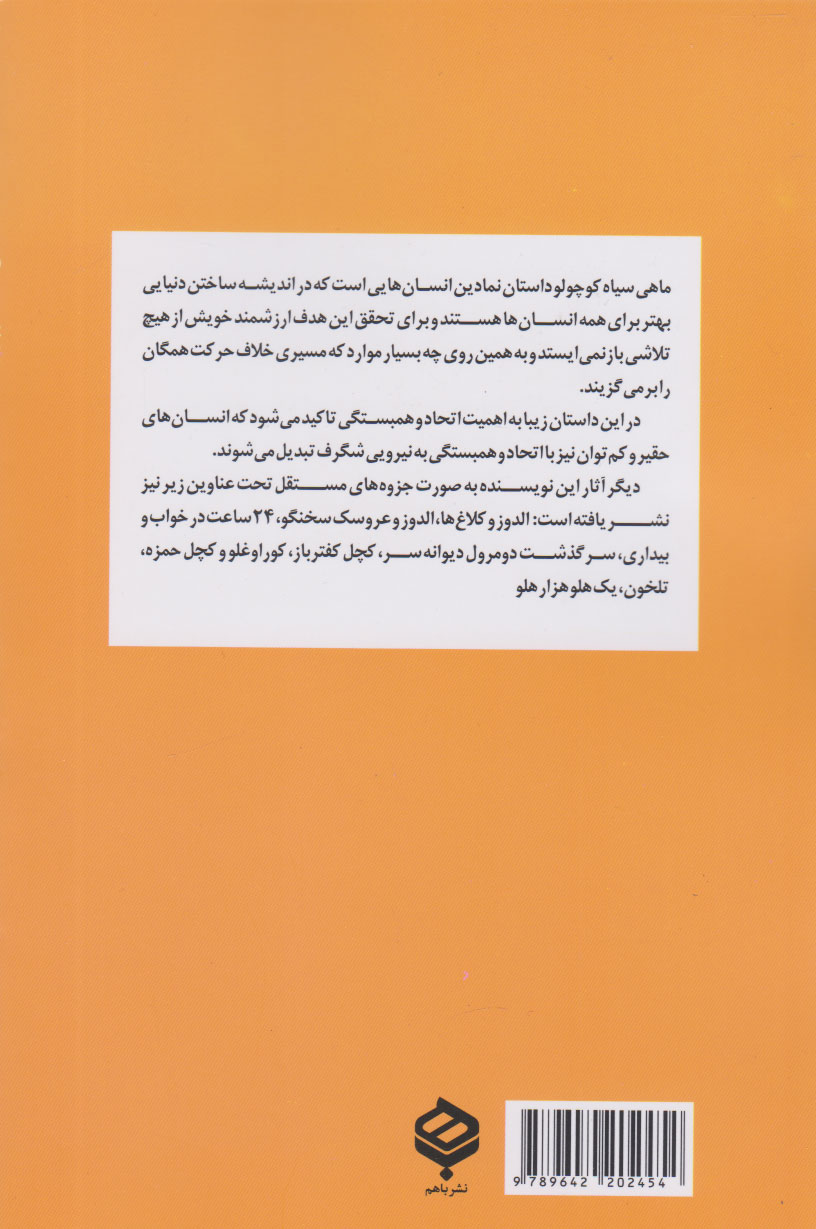 ماهی سیاه کوچولو داستان نمادین انسان‌هایی است که در اندیشه ساختن دنیایی
بهتر برای همه انسان‌ها هستند و برای تحقق این هدف ارزشمند خویش از هیچ
تلاشی باز نمی ایستد و به همین روی چه بسیار موارد که مسیری خلاف حرکت همگان
را بر می گزیند.
در این داستان زیبا به اهمیت اتحاد و همبستگی تاکید می شود که انسان‌های
حقیر و کم توان نیز با اتحاد و همبستگی به نیرویی شگرف تبدیل می شوند.
دیگر آثار این نویسنده به صورت جزوه‌های مستقل تحت عناوین زیر نیز
نشر یافته است: الدوز و کلاغ‌ها، الدوز و عروسک سخنگو، ۲۴ ساعت در خواب و
بیداری، سرگذشت دومرول دیوانه سر، کچل کفترباز، کوراوغلو و کچل حمزه،
تلخون، یک هلو هزار هلو
نشر باهم
9 789642 202454